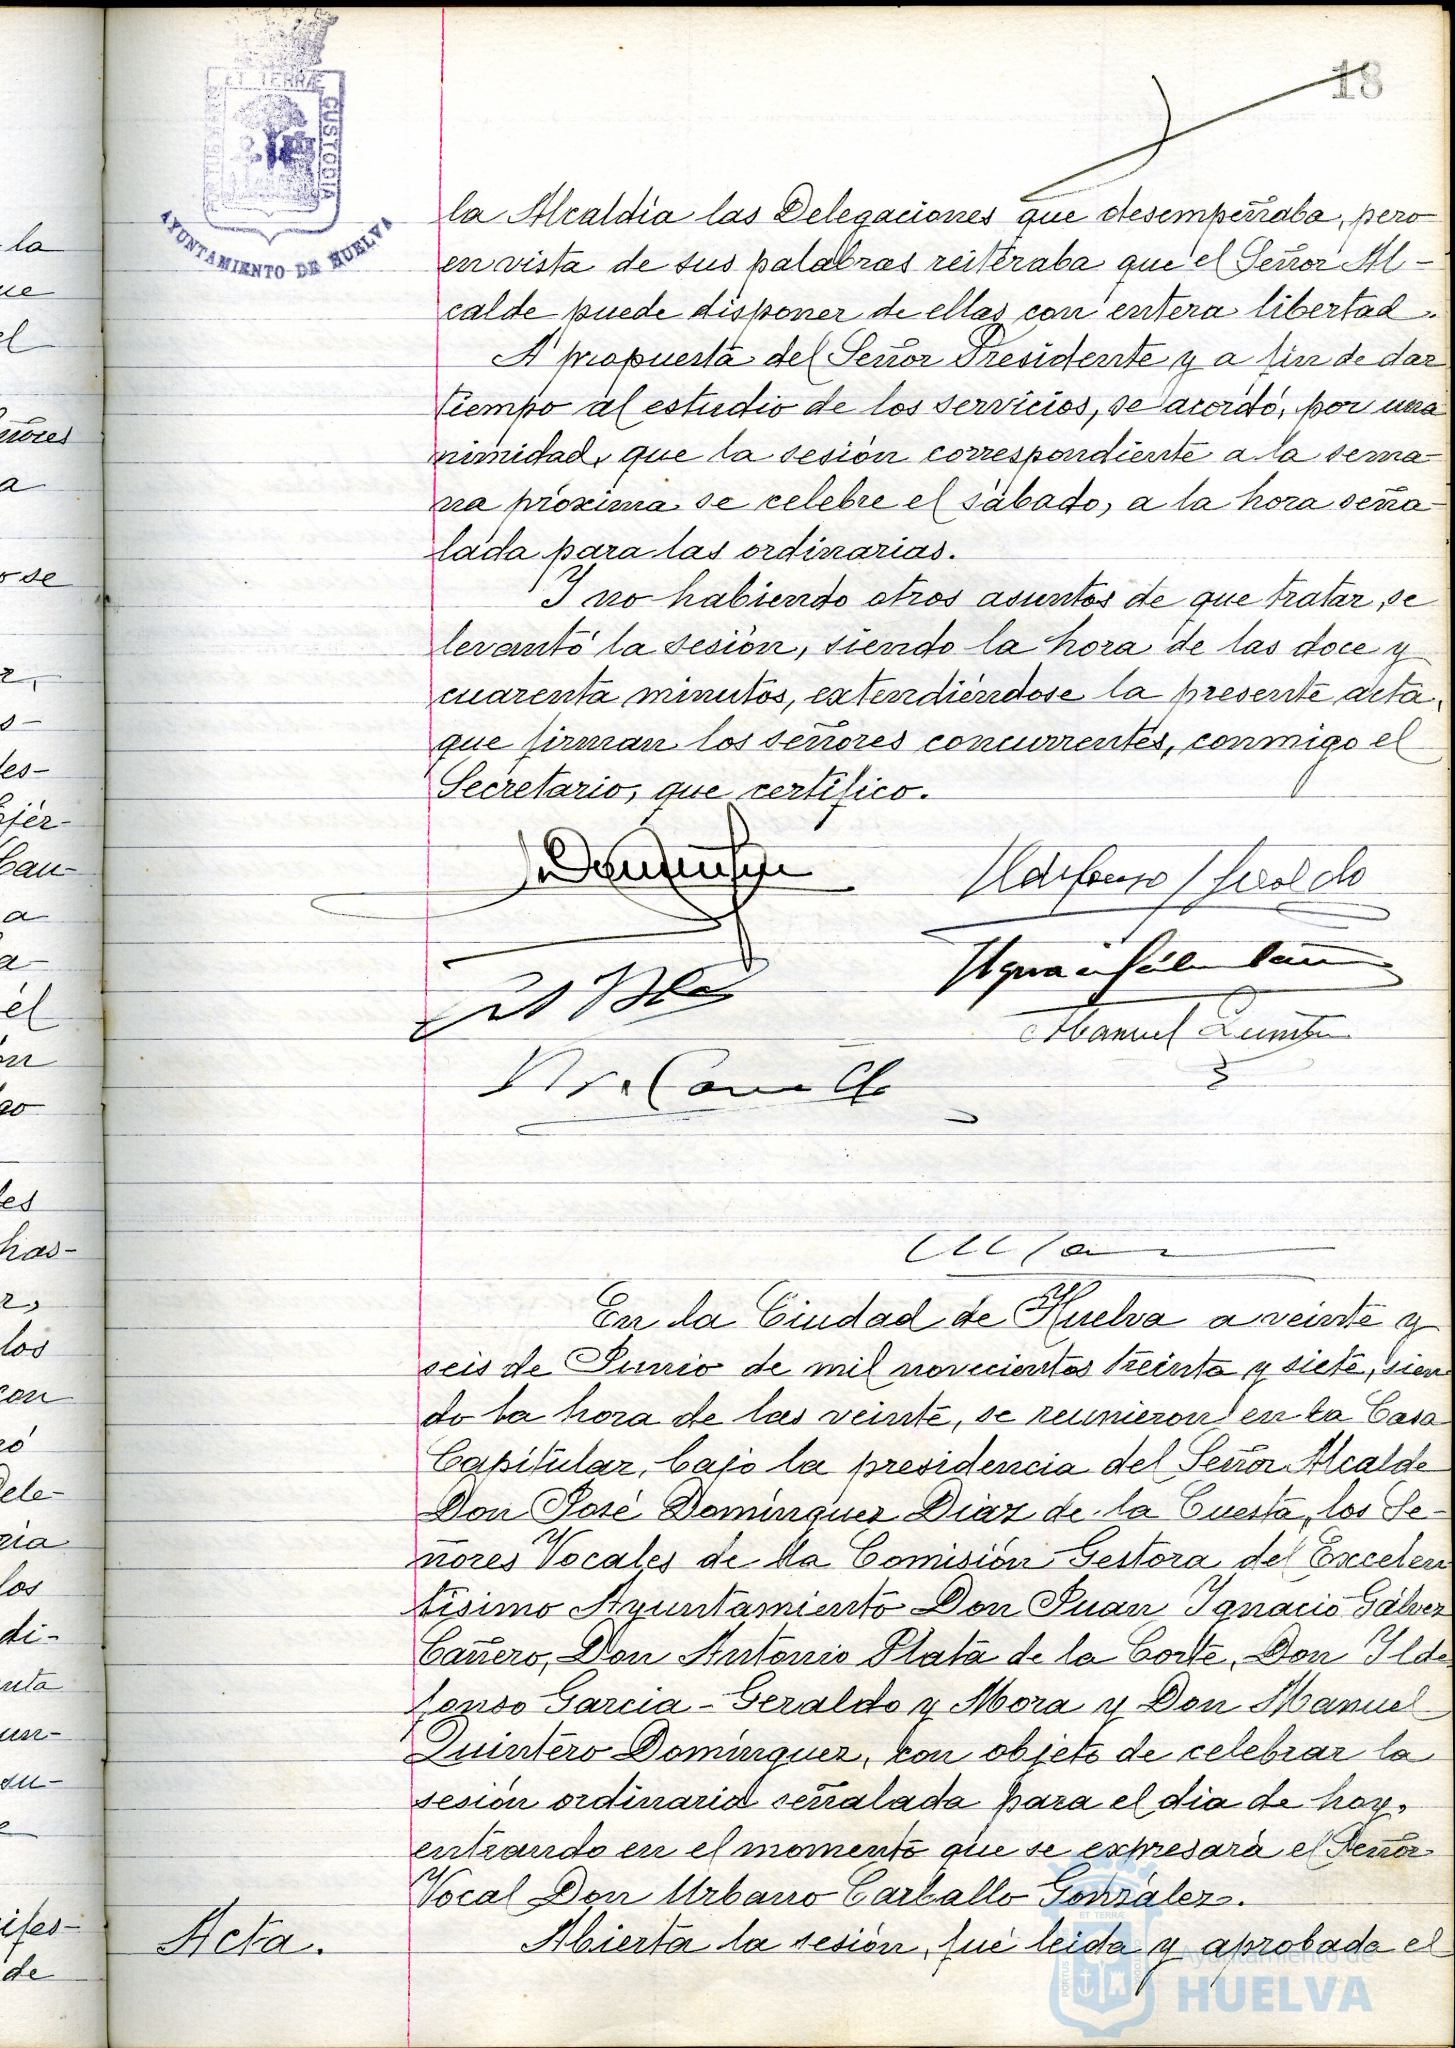 18
ET TERRÆ
CUSTODIA
AYUNTAMIENTO DE HUELVA
la Alcaldía las Delegaciones que desempeñaba, pero
en vista de sus palabras reiteraba que el Señor Al-
calde puede disponer de ellas con entera libertad.
A propuesta del Señor Presidente y a fin de dar
tiempo al estudio de los servicios, se acordó, por una
nimidad, que la sesión correspondiente a la sema-
na próxima se celebre el sábado, a la hora seña-
lada para las ordinarias.
Y no habiendo otros asuntos de que tratar, se
levantó la sesión, siendo la hora de las doce y
cuarenta minutos, extendiéndose la presente acta,
que firman los señores concurrentes, conmigo el
Secretario, que certifico.
Ildefonso Geraldo
Manuel
En la Ciudad de Huelva a veinte y
seis de Junio de mil novecientos treinta y siete, sien
do la hora de las veinte, se reunieron en la Casa
Capitular, bajo la presidencia del Señor Alcalde
Don José Domínguez Díaz de la Cuesta, los Se-
ñores Vocales de la Comisión Gestora del Excelen
tísimo Ayuntamiento Don Juan Ignacio Gálvez
Cañero, Don Antonio Plata de la Corte, Don Ilde
fonso García-Geraldo y Mora y Don Manuel
Quintero Domínguez, con objeto de celebrar la
sesión ordinaria señalada para el día de hoy,
entrando en el momento que se expresará el Señor
Vocal Don Urbano Carballo González.
Acta.
Abierta la sesión, fué leída y aprobada el
Ayuntamiento de
HUELVA